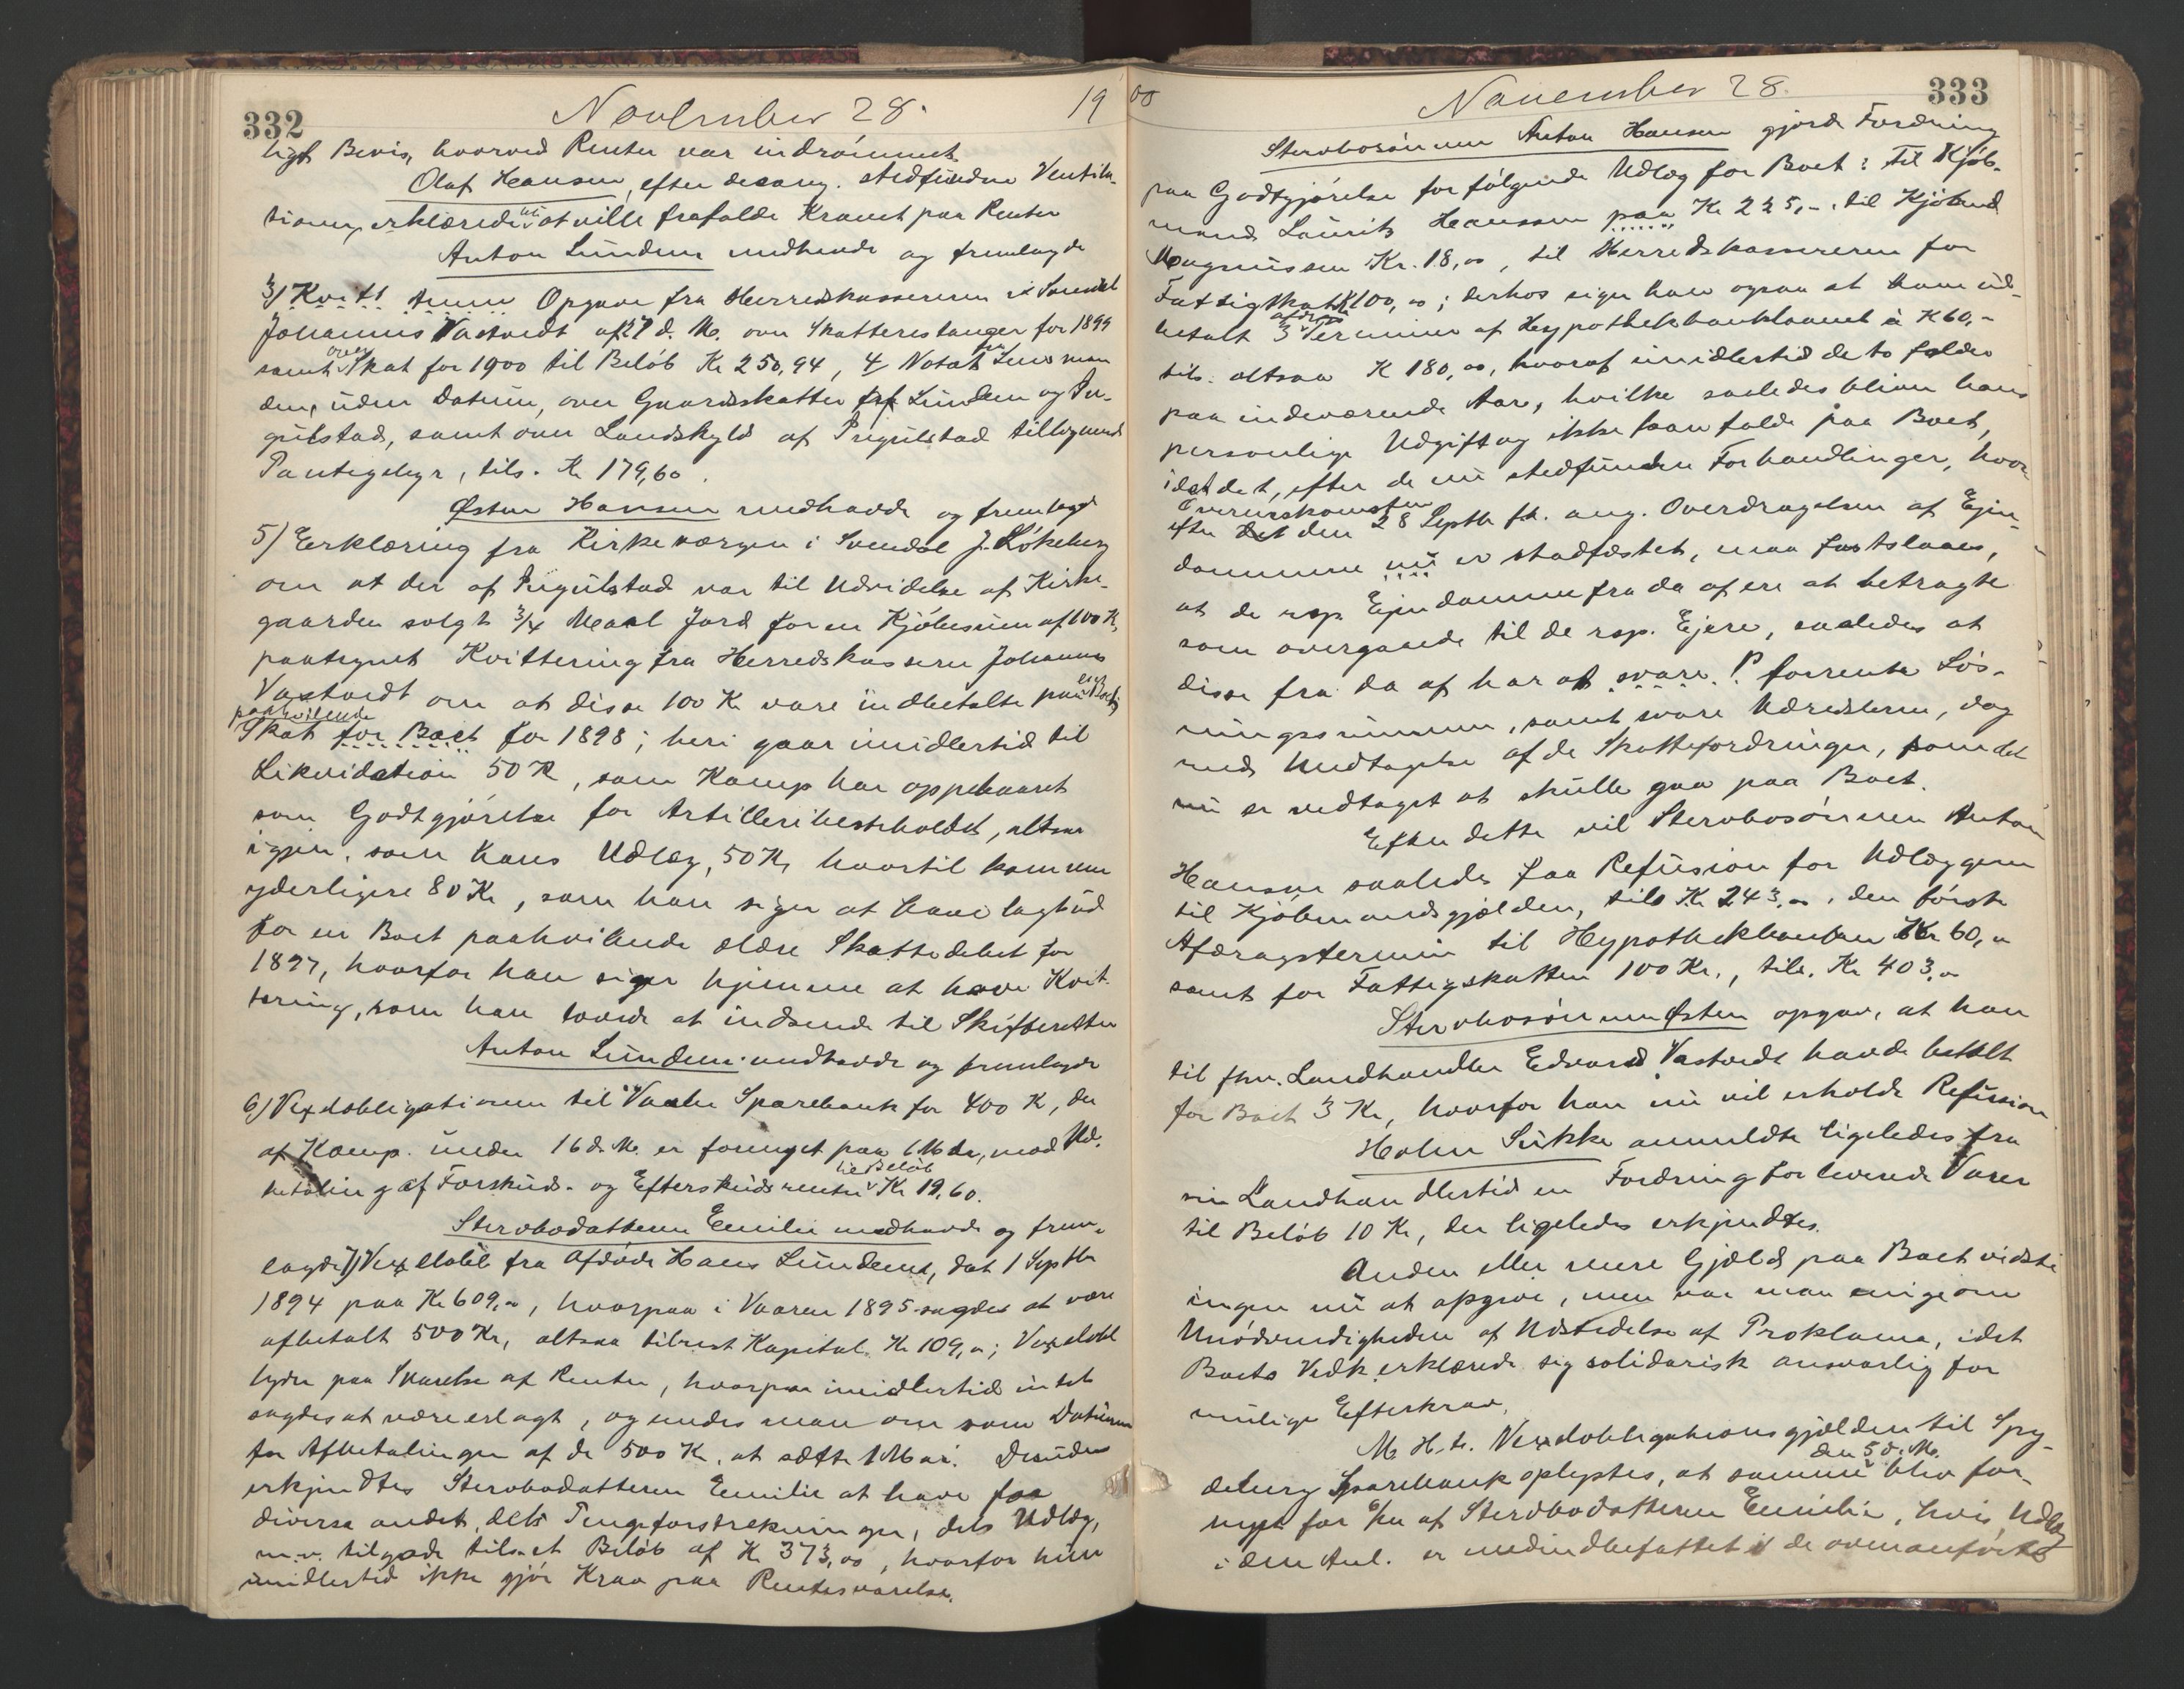 332
November 28.
19
ligt Bevis, hvorved Renter var indrömmet.
Olaf Hansen, efter desang. stedfundne Ventila-
tioner, erklærede nu at ville frafalde Kravet paa Renter
Anton Lundem medhavde og fremlagde
3/ Kvitt Opgave fra Herredskassereren i Svindal
Johannes Vastvedt af 27 d. M. over Skatterestanger for 1899
samt over Skat for 1900 til Belöb Kr 250,94, 4/ Notat fra Lensman
den, uden Datum, over Gaardsskatter af Lundem og
gulstad, samt over Landskyld af Prigulstad tillignende
Pantegebyr, tils. Kr 179,60.
Østen Hansen medhavde og fremlagde
5) Erklæring fra Kirkeværgen i Svendal J. Lökeberg
om at der af Prigulstad var til Udvidelse af Kirke-
gaarden solgt 3/4 Maal Jord for en Kjöbesum af 100 K,
paategnet Kvittering fra Herredskasserer Johannes
Vastvedt om at disse 100 Kr vare indbetalte paa en Boets
paahvilende
Skat for Boet for 1898; heri gaar imidlertid til
Likvidation 50 K, som Kamp har oppebaaret
som Godtgjörelse for Artillerihesteholdet, altsaa
igjen, som hans Udlæg, 50 Kr, hvortil kommer
yderligere 80 Kr, som han siger at have lagt ud
for en Boet paahvilende ældre Skattedebet for
1897, hvorfor han siger hjemme at have Kvit-
tering, som han lovede at indsende til Skifteretten
Anton Lundem medhavde og fremlagde
6) Vexelobligationen til Vaaler Sparebank for 400 K, der
af Kamp. under 16 d. M. er fornyet paa 6 Mdr, mod Ud-
betaling af Forskuds- og Efterskudsrenter til Belöb Kr 19,60.
Stervbodatteren Emilie medhavde og frem-
lagde 7) Vexelobl fra Afdöde Hans Lundem, dat 1 Septbr
1894 paa Kr 609,00, hvorpaa i Vaaren 1895 sagdes at være
afbetalt 500 Kr, altsaa tilrest Kapital Kr 109,00; Vexelobl
lyder paa Svarelse af Renter, hvorpaa imidlertid intet
sagdes at være erlagt, og enedes man om som Datum
for Afbetalingen af de 500 K. at sætte 1 Mai. Desuden
erkjendtes Stervbodatteren Emilie at have faa
diverse andet, dels Pengeforstrækninger, dels Udlæg,
m.v. tilgode tils. et Belöb af K. 373,00, hvorfor hun
imidlertid ikke gjör Krav paa Rentesvarelse.
00
November 28.
333
Stervbosönnen Anton Hansen gjorde Fordring
paa Godtgjörelse for fölgende Udlæg for Boet: Til Kjöb-
mand Laurits Hanssen paa Kr 225,-, til Kjöbmd
Magnussen Kr. 18,00, til Herredskassereren for
Fattigskat K 100,00; derhos siger han ogsaa at have ud-
betalt 3 Afdrags Terminer af Hypothekbanklaanet à K 60,-
tils. altsaa K 180,00, hvoraf imidlertid de to falder
paa indeværende Aar, hvilke saaledes bliver hans
personlige Udgift og ikke kan falde paa Boet,
idet det, efter de nu stedfundne Forhandlinger, hvor-
Overenskomsten
efter den 28 Septbr f.A. ang. Overdragelsen af Ejen-
dommene nu er stadfæstet, maa fastslaaes,
at de resp. Ejendomme fra da af ere at betragte
som overgaaede til de resp. Ejere, saaledes at
disse fra da af har at svare forrente Lös-
ningssummen, samt svare Udredslerne, dog
med Undtagelse af de Skattefordringer, som det
nu er vedtaget at skulle gaa paa Boet.
Efter dette vil Stervbosönnen Anton
Hansen saaledes faa Refusion for Udlæggene
til Kjöbmandsgjælden, tils Kr 243,00, den förste
Afdragstermin til Hypothekbanken Kr 60,00
samt for Fattigskatten 100 Kr., tils. Kr 403,00
Stervbosönnen Østen opgav, at han
til fhv. Landhandler Edvard Vastvedt havde betalt
for Boet 3 Kr, hvorfor han nu vil erholde Refusion
Holm Sikke anmeldte ligeledes fra
sin Landhandlertid en Fordring for leverede Varer
til Belöb 10 Kr, der ligeledes erkjendtes.
Anden eller mere Gjæld paa Boet vidste
ingen nu at opgive, men var man enige om
Unödvendigheden af Udstedelse af Proklama, idet
Boets Vedk. erklærede sig solidarisk ansvarlig for
mulige Efterkrav.
M. H. t. Vexelobligationsgjælden til Spy-
deberg Sparebank oplystes, at samme den 5 d. M. blev for-
nyet for af Stervbodatteren Emilie, hvis Udlæg
i den Anl. er medindbefattet i de ovenanförte